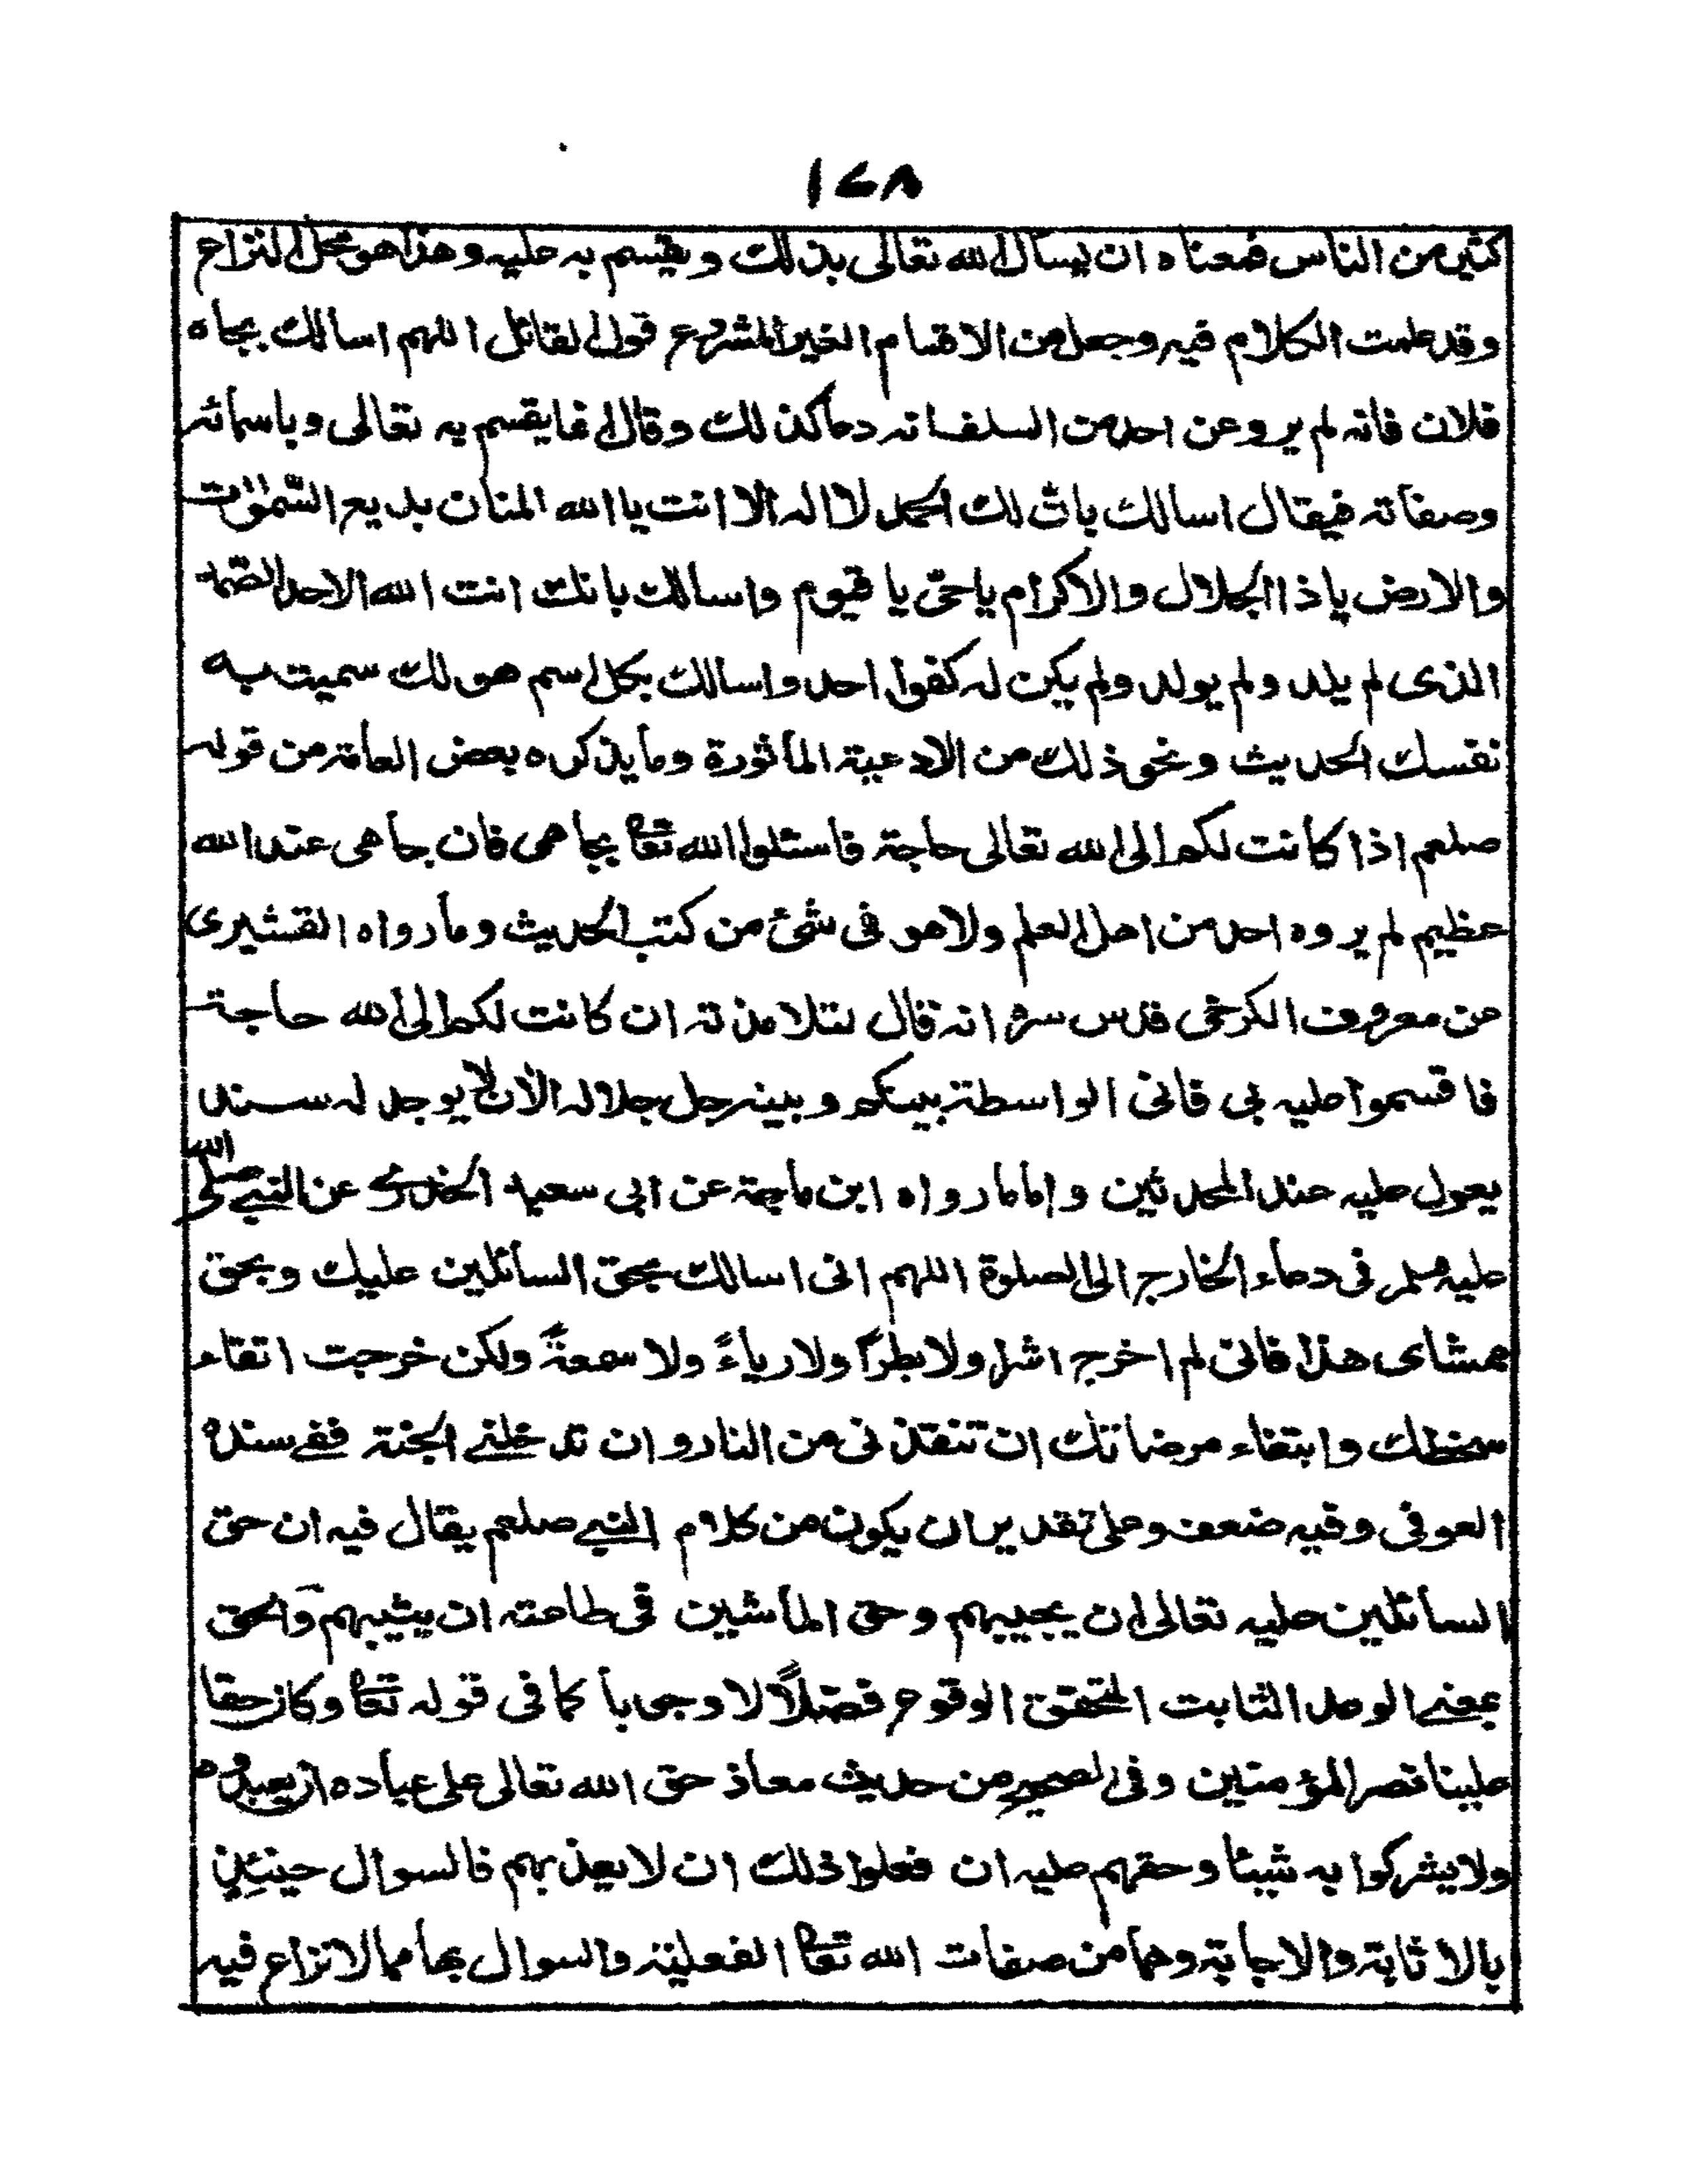 ١٧٨
كثير من الناس فمعناه ان يسأل الله تعالى بذلك ويقسم به عليه وهذا هو محل النزاع
وقد علمت الكلام فيه وجعل من الاقسام الغير المشروع قول القائل اللهم اسالك بجاه
فلان فانه لم يرو عن احد من السلف انه دعا كذلك وقال انما يقسم به تعالى وباسمائه
وصفاته فيقال اسالك بان لك الحمد لا اله الا انت يا الله المنان بديع السمٰوٰت
والارض يا ذا الجلال والاكرام يا حيّ يا قيوم واسالك بانك انت الله الاحد الصمد
الذى لم يلد ولم يولد ولم يكن له كفوا احد واسالك بكل اسم هو لك سميت به
نفسك الحديث ونحو ذلك من الادعية المأثورة وما يذكره بعض العامة من قوله
صلعم اذا كانت لكم الى الله تعالى حاجة فاسئلوا الله تعا بجاهى فان جاهى عند الله
عظيم لم يروه احد من اهل العلم ولا هو فى شئ من كتب الحديث وما رواه القشيرى
عن معروف الكرخى قدس سره انه قال لتلامذته ان كانت لكم الى الله حاجة
فاقسموا عليه بى فانى الواسطة بينكم وبينه جل جلاله الآن لا يوجد له سند
يعول عليه عند المحدثين واما ما رواه ابن ماجة عن ابى سعيد الخدرى عن النبي صلى الله
عليه وسلم فى دعاء الخارج الى الصلوة اللهم انى اسالك بحق السائلين عليك وبحق
ممشاى هذا فانى لم اخرج اشرا ولا بطراً ولا رياءً ولا سمعةً ولكن خرجت اتقاء
سخطك وابتغاء مرضاتك ان تنقذنى من النار وان تدخلني الجنة ففي سنده
العوفى وفيه ضعف وعلى تقدير ان يكون من كلام النبي صلعم يقال فيه ان حق
السائلين عليه تعالى ان يجيبهم وحق الماشين فى طاعته ان يثيبهم والحق
بمعنى الوعد الثابت المتحقق الوقوع فضلاً لا وجوبا كما فى قوله تعا وكان حقا
علينا نصر المؤمنين وفى الصحيح من حديث معاذ حق الله تعالى على عباده ان يعبدوه
ولا يشركوا به شيئا وحقهم عليه ان فعلوا ذلك ان لا يعذبهم فالسوال حينئذٍ
بالاثابة والاجابة وهما من صفات الله تعا الفعلية والسوال بها مما لا نزاع فيه